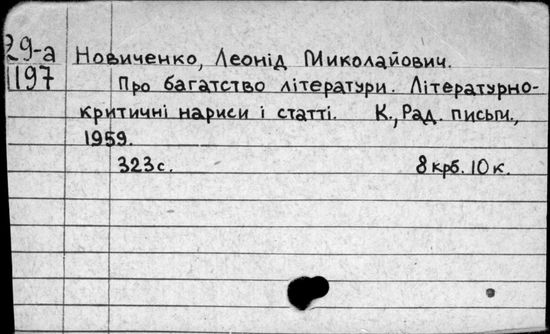 29-а
1197
Новиченко, Леонід Миколайович.
Про багатство літератури. Літературно-
критичні нариси і статті. К., Рад. письм.,
1959.
323 с. 8 крб. 10 к.